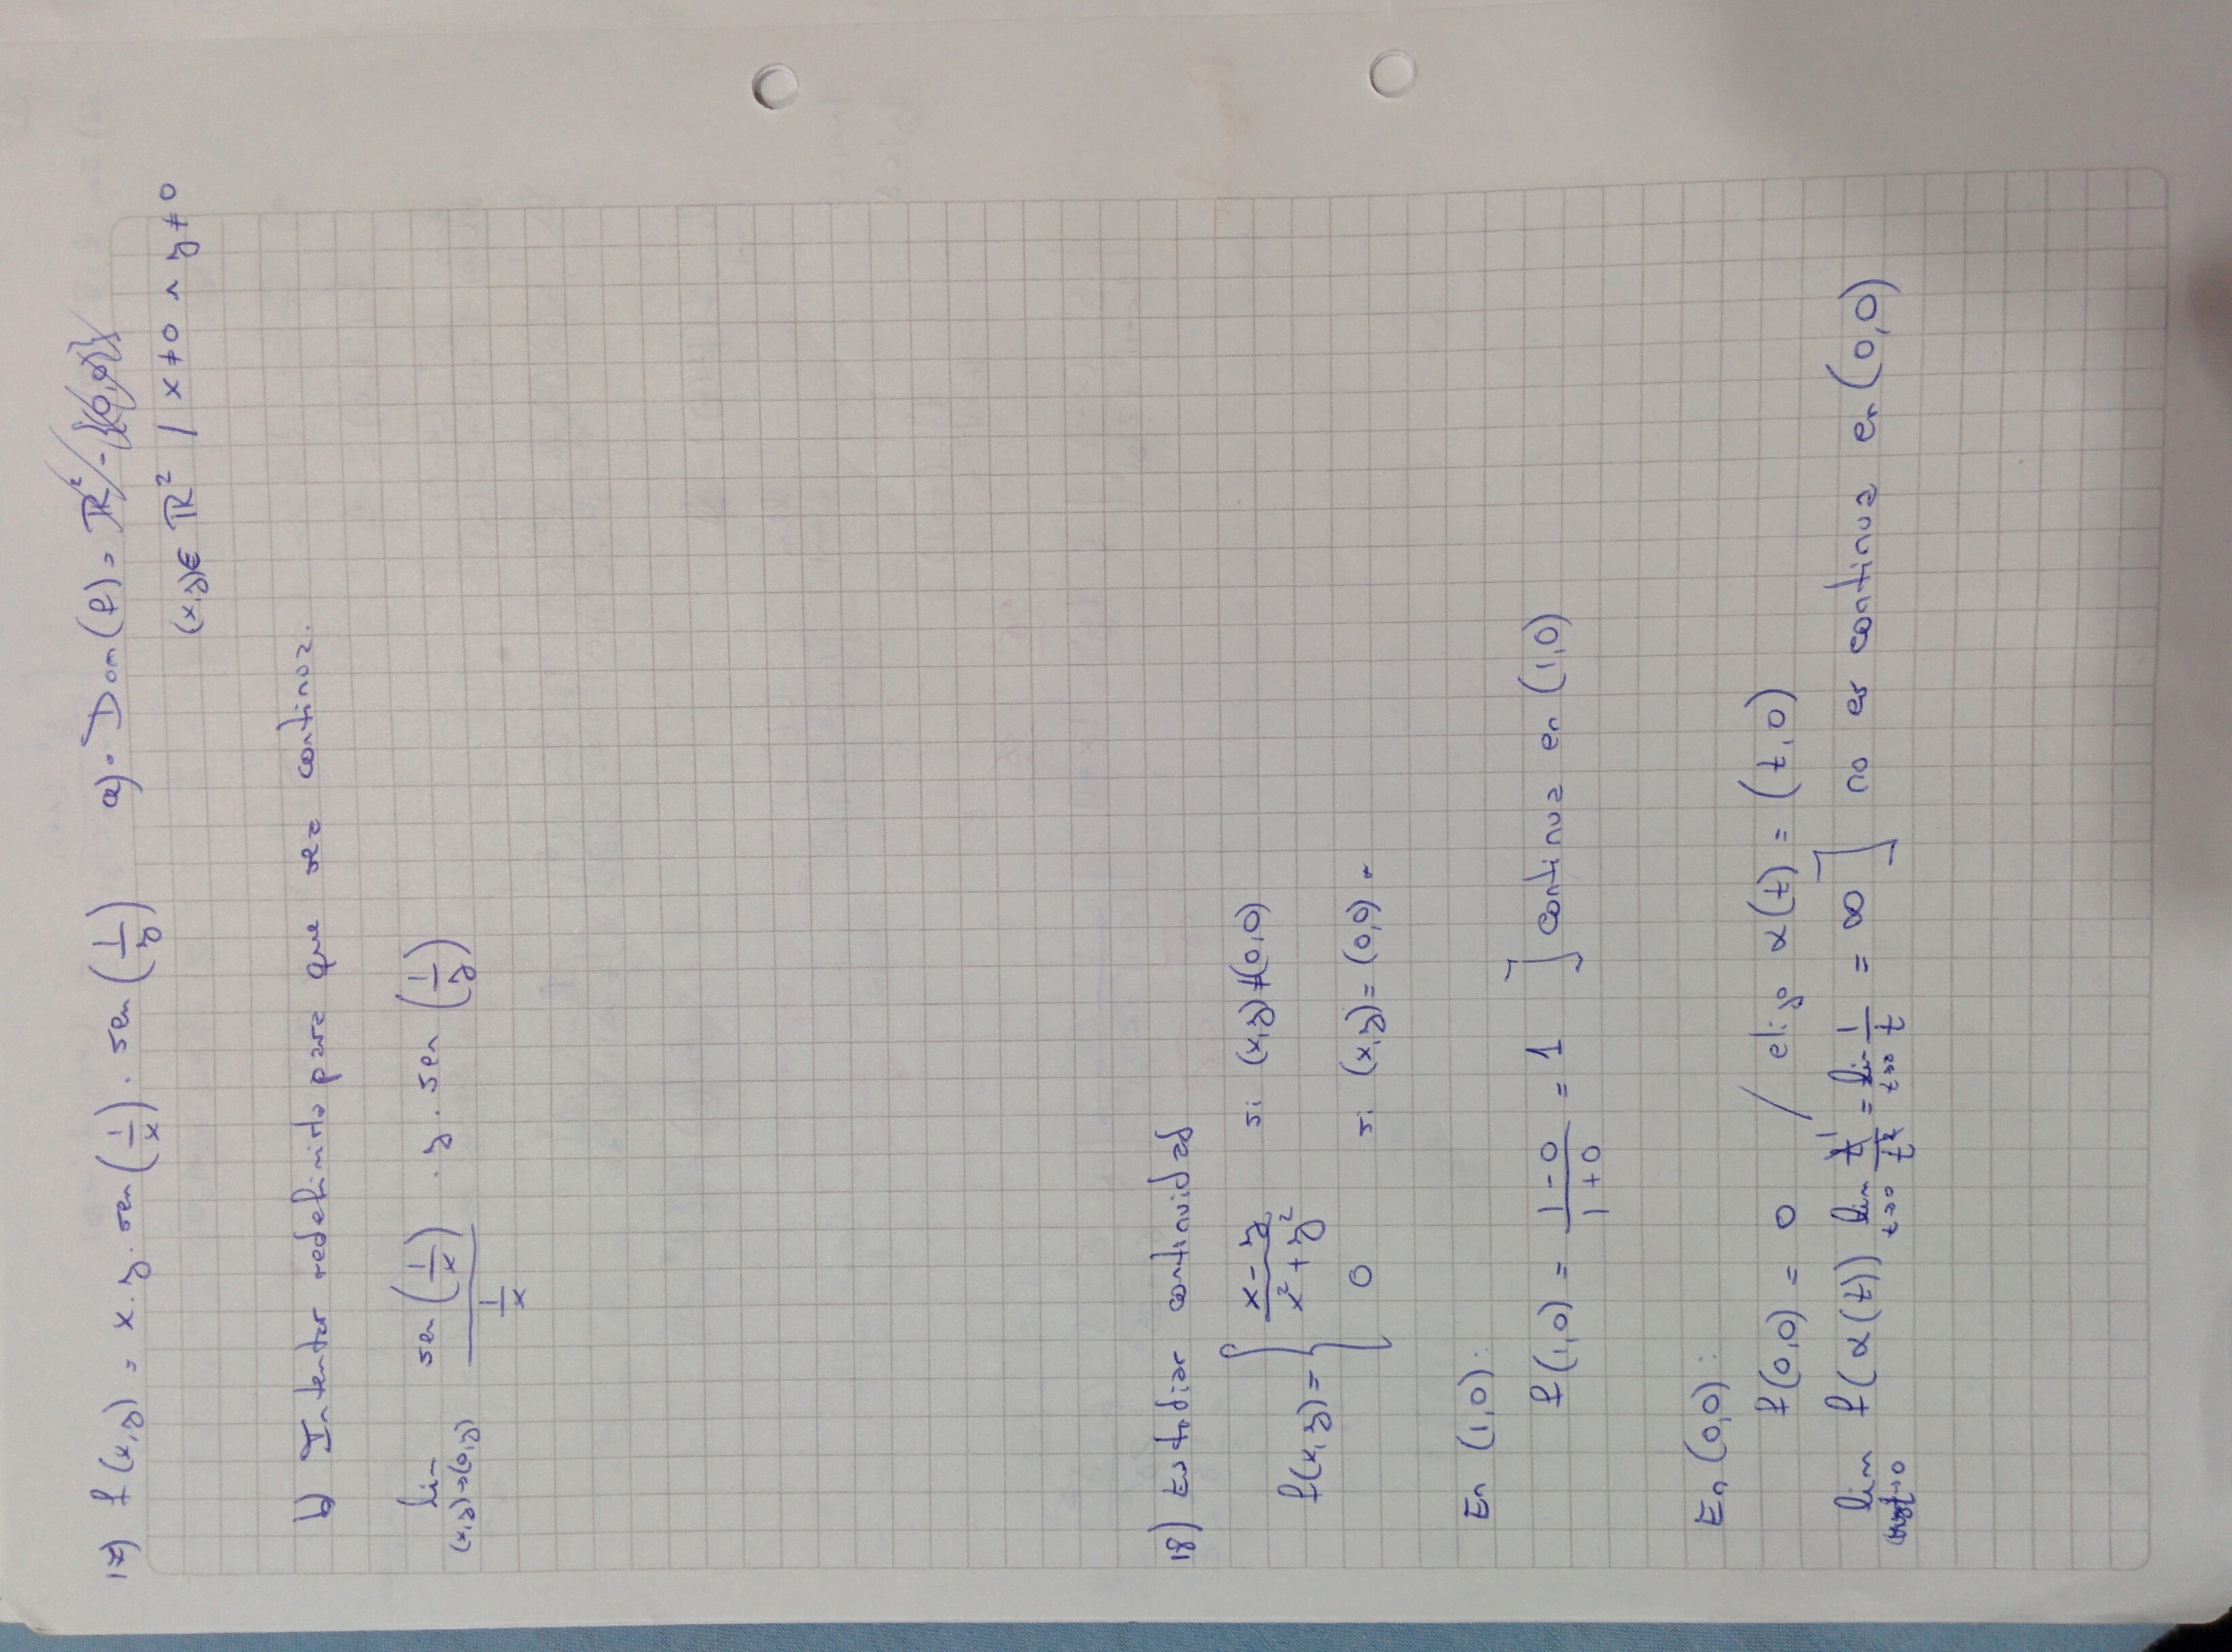 17) f(x,y) = x.y.sen(1/x).sen(1/y) a). Dom(f) = ℝ² - {(0,0)}
(x,y)∈ ℝ² / x≠0 ∧ y≠0
b) Intentar redefinirla para que sea continua.
lim (x,y)→(0,y) sen(1/x)/(1/x) . y . sen(1/y)
18) Estudiar continuidad
f(x,y) = { (x-y)/(x²+y²) si (x,y)≠(0,0)
0 si (x,y)=(0,0)
En (1,0):
f(1,0) = (1-0)/(1+0) = 1 ] continua en (1,0)
En (0,0):
f(0,0) = 0 / elijo α(t) = (t,0)
lim t→0 f(α(t)) lim t→0 t/t² = lim t→0 1/t = ∞ ] no es continua en (0,0)